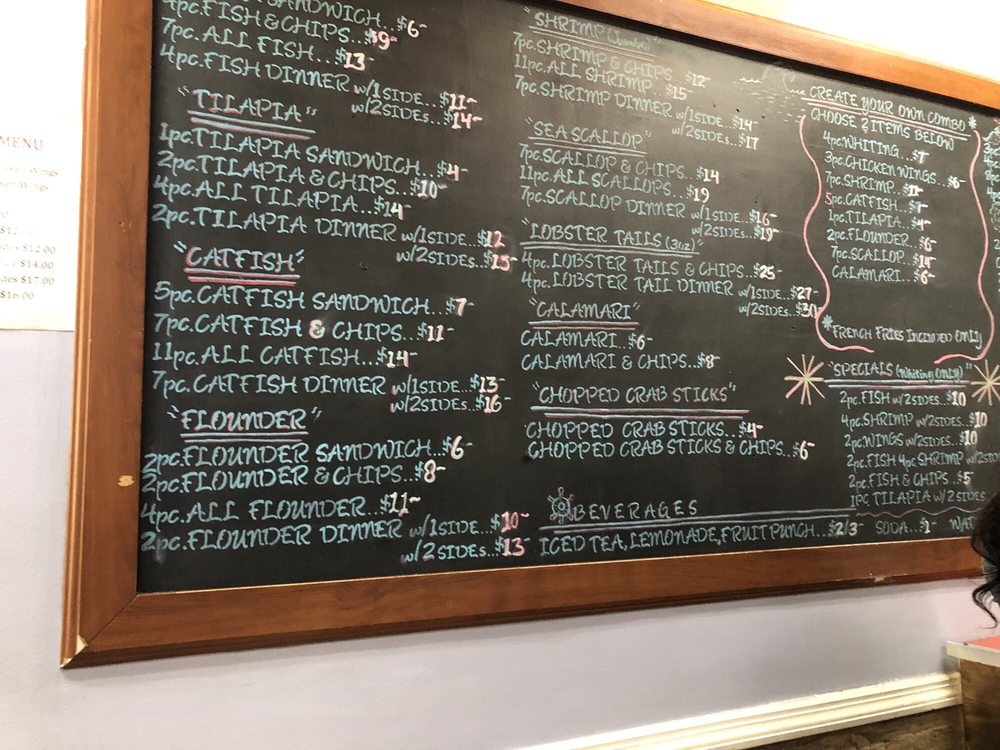 SANDWICH...$6-
4pc.FISH & CHIPS...$9-
7pc.ALL FISH...$13-
4pc.FISH DINNER w/1SIDE...$11-
w/2SIDEs...$14-
"TILAPIA"
1pc.TILAPIA SANDWICH...$4-
2pc.TILAPIA & CHIPS...$10-
4pc.ALL TILAPIA...$14-
2pc.TILAPIA DINNER w/1SIDE...$12
w/2SIDEs...$15-
"CATFISH"
5pc.CATFISH SANDWICH...$7-
7pc.CATFISH & CHIPS...$11-
11pc.ALL CATFISH...$14-
7pc.CATFISH DINNER w/1SIDE...$13-
w/2SIDEs...$16-
"FLOUNDER"
2pc.FLOUNDER SANDWICH...$6-
2pc.FLOUNDER & CHIPS...$8-
4pc.ALL FLOUNDER...$11-
2pc.FLOUNDER DINNER w/1SIDE...$10-
w/2SIDEs...$13
"SHRIMP (Jumbo)"
7pc.SHRIMP & CHIPS...$12-
11pc.ALL SHRIMP...$15-
7pc.SHRIMP DINNER w/1SIDE...$14-
w/2SIDEs...$17
"SEA SCALLOP"
7pc.SCALLOP & CHIPS...$14
11pc.ALL SCALLOPS...$19
7pc.SCALLOP DINNER w/1SIDE...$16-
w/2SIDEs...$19-
"LOBSTER TAILS (3oz)"
4pc.LOBSTER TAILS & CHIPS...$25-
4pc.LOBSTER TAIL DINNER w/1SIDE...$27-
w/2SIDEs...$30
"CALAMARI"
CALAMARI...$6-
CALAMARI & CHIPS...$8-
"CHOPPED CRAB STICKS"
CHOPPED CRAB STICKS...$4-
CHOPPED CRAB STICKS & CHIPS...$6-
BEVERAGES
ICED TEA, LEMONADE, FRUIT PUNCH...$2/3- SODA...$1-
CREATE YOUR OWN COMBO*
CHOOSE 2 ITEMS BELOW
4pc.WHITING...$7-
3pc.CHICKEN WINGS...$6-
7pc.SHRIMP...$11-
5pc.CATFISH...$7-
1pc.TILAPIA...$4-
2pc.FLOUNDER...$6-
7pc.SCALLOP...$14-
CALAMARI...$6-
*FRENCH FRIES INCLUDED ONLY
"SPECIALS (Whiting ONLY)"
2pc.FISH w/2SIDES...$10
4pc.SHRIMP w/2SIDES...$10
2pc.WINGS w/2SIDES...$10
2pc.FISH 4pc.SHRIMP
2pc.FISH & CHIPS...$5
1PC TILAPIA w/2 SIDES
MENU
Wings
$12.00
$14.00
$17.00
$16.00